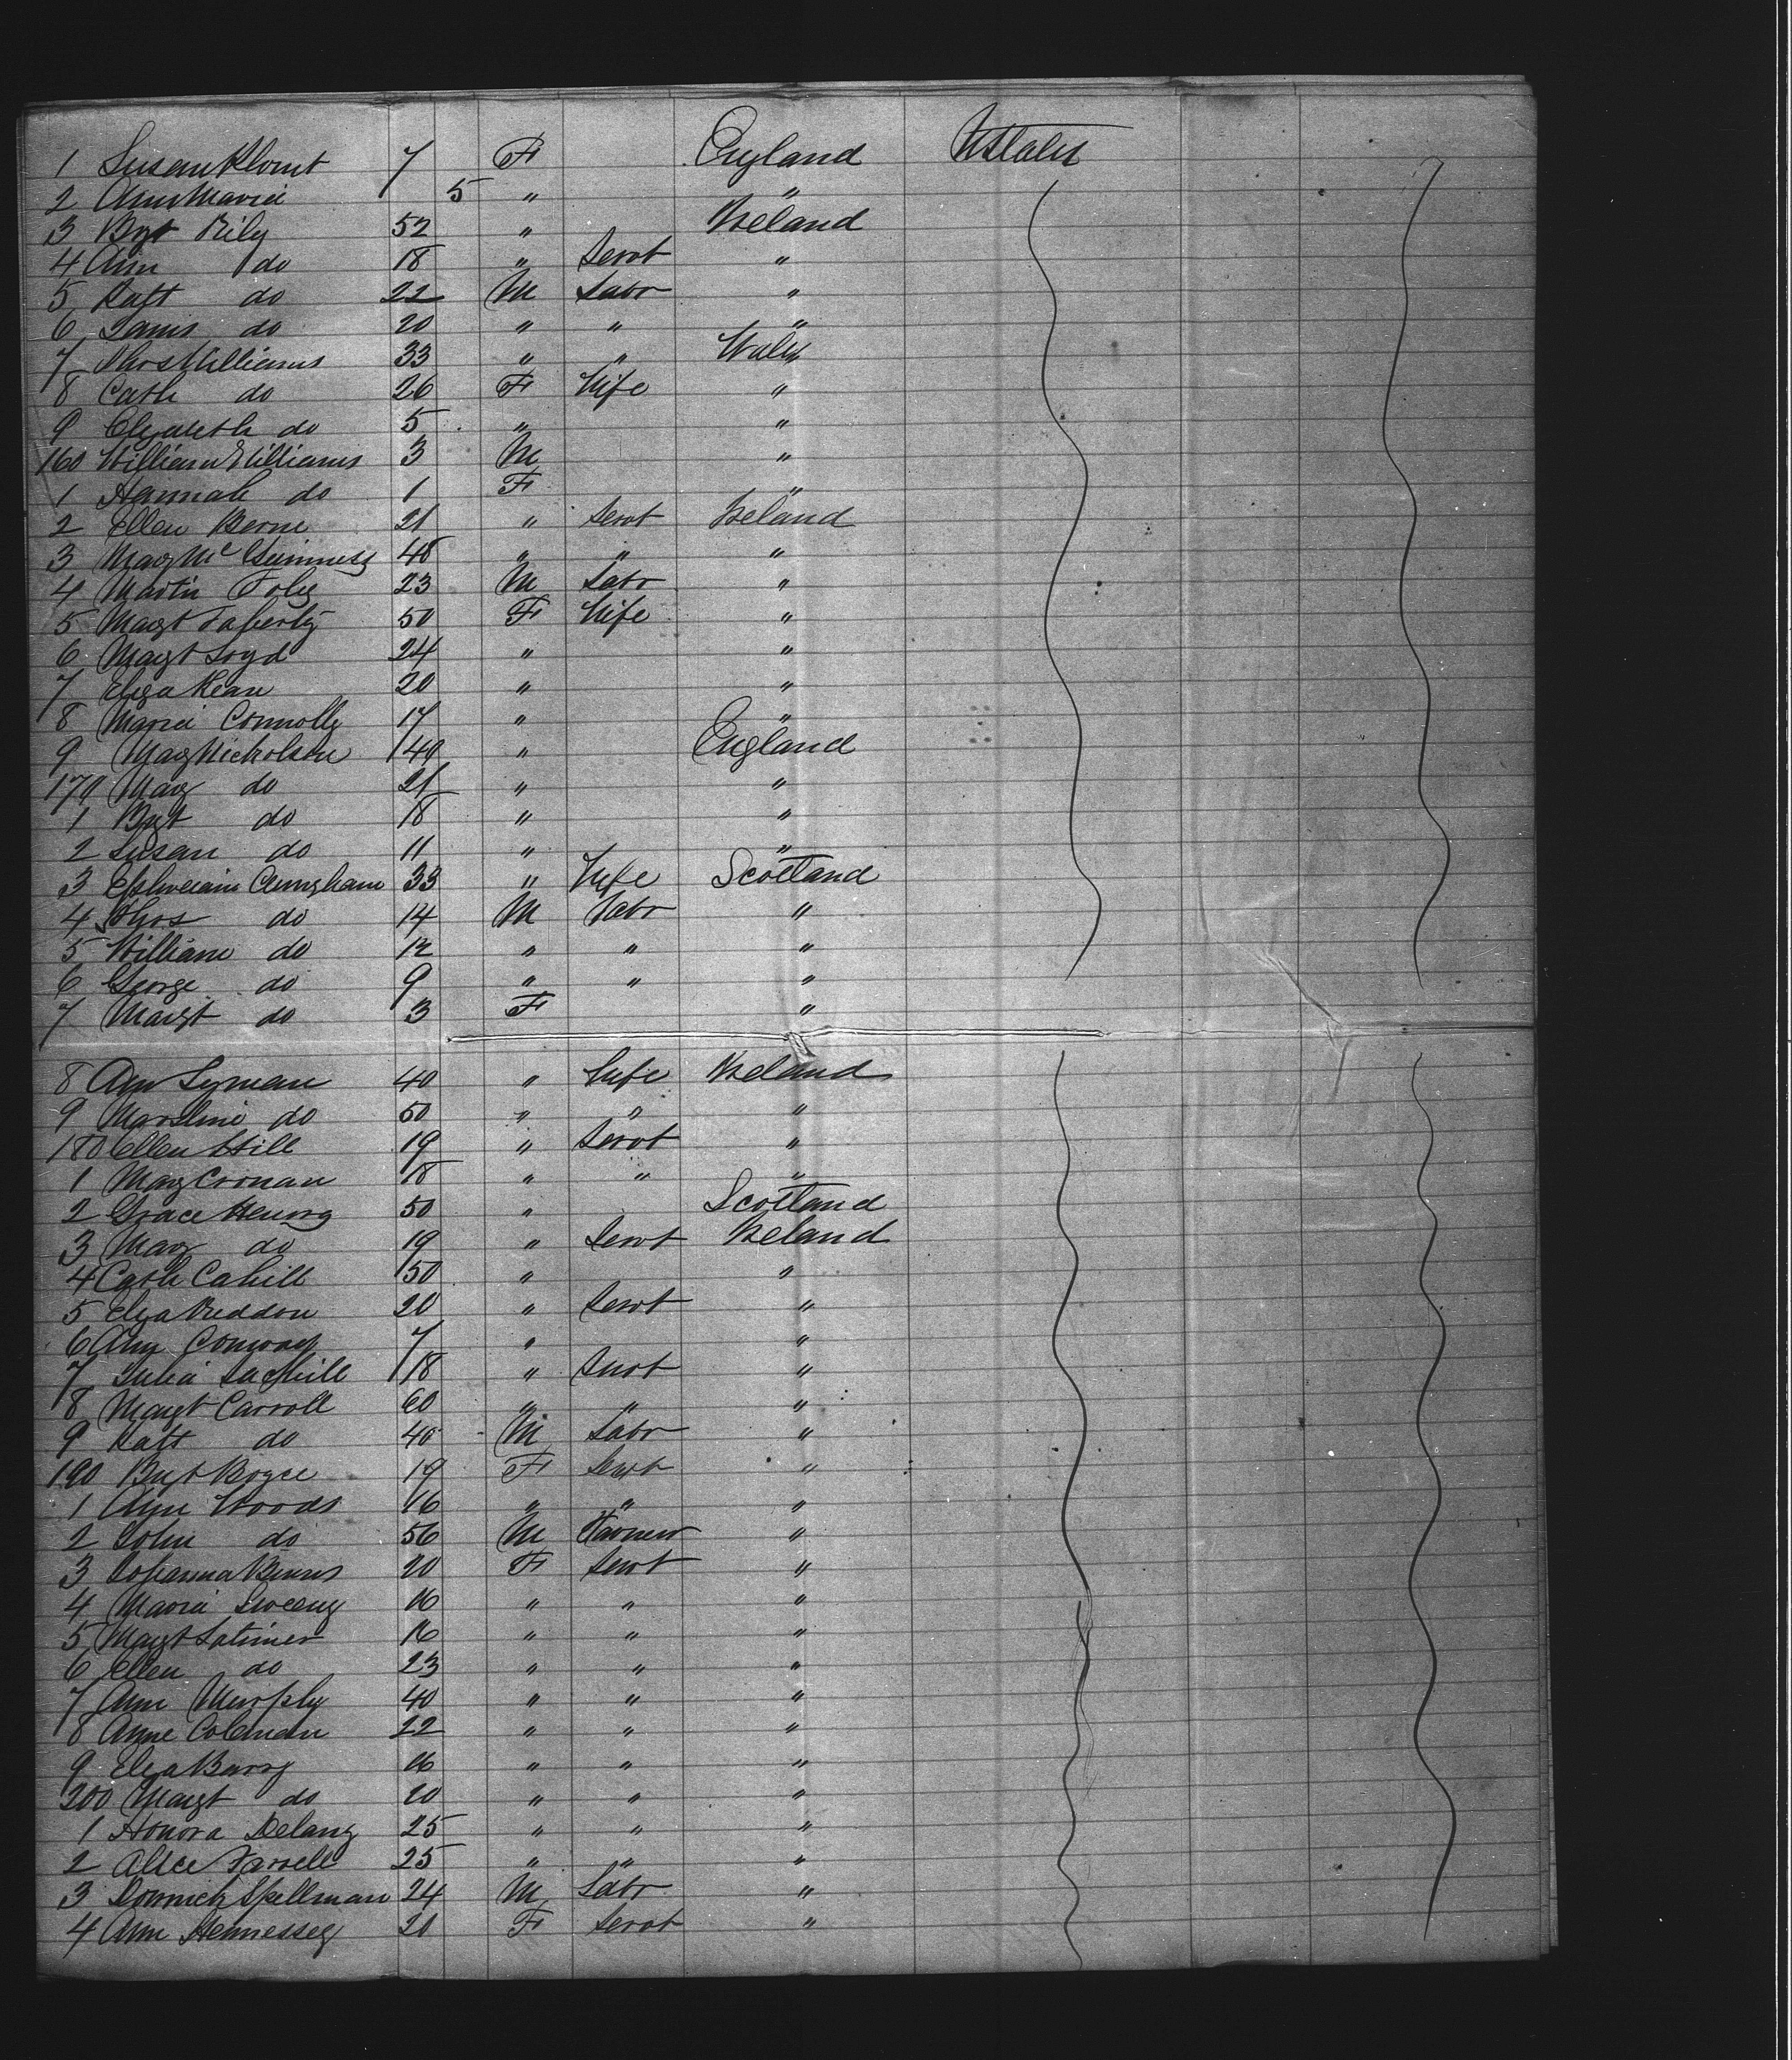 1 Susan 7 F England U States
2 Ann Maria 5 " "
3 Bgt Rily 52 " Ireland
4 Ann do 18 " Servt "
5 Patt do 22 M Labr "
6 James do 20 " " "
7 Thos Williams 33 " " Wales
8 Cath do 26 F Wife "
9 Elizabeth do 5 " "
160 William Williams 3 M "
1 Hannah do 1 F "
2 Ellen Berne 21 " Servt Ireland
3 Mary Mc Guinness 48 " " "
4 Martin Foley 23 M Labr "
5 Magt Faherty 50 F Wife "
6 Magt Loyd 24 " "
7 Eliza Kean 20 " "
8 Maria Connolly 17 " "
9 Mary Nicholson 40 " England
170 Mary do 21 " "
1 Bgt do 18 " "
2 Susan do 11 " "
3 Cunigham 33 " Wife Scotland
4 Thos do 14 M Labr "
5 William do 12 " " "
6 George do 9 " " "
7 Margt do 3 F "
8 Ann Lyman 40 " Wife Ireland
9 do 50 " " "
180 Ellen Hill 19 " Servt "
1 Mary Cronan 18 " " "
2 Grace Henry 50 " Scotland
3 Mary do 19 " Servt Ireland
4 Cath Cahill 50 " "
5 Eliza 20 " Servt "
6 Ann Conway 7 " "
7 Julia 18 " Servt "
8 Margt Carroll 60 " " "
9 Patt do 40 M Labr "
190 Bgt Boyce 19 F Servt "
1 Ann Woods 16 " " "
2 John do 56 M Farmer "
3 Johanna Burns 20 F Servt "
4 Maria Sweeny 16 " " "
5 Magt Latimer 16 " " "
6 Ellen do 23 " " "
7 Ann Murphy 40 " " "
8 Anne Coleman 22 " " "
9 Eliza Barry 16 " " "
200 Margt do 20 " " "
1 Honora Delany 25 " " "
2 Alice Farrell 25 " " "
3 Dominick Spellman 24 M Labr "
4 Ann Hennessey 20 F Servt "